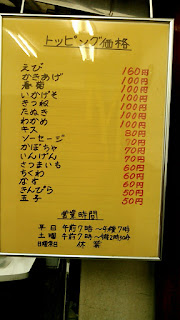 トッピング価格
えび 160円
かきあげ 100円
春菊 100円
いかげそ 100円
きつね 100円
たぬき 100円
わかめ 100円
キス 80円
ソーセージ 70円
かぼちゃ 70円
いんげん 70円
さつまいも 60円
ちくわ 60円
なす 60円
きんぴら 50円
玉子 50円
営業時間
平日 午前7時〜午後7時
土曜 午前7時〜
日曜祭日 休業